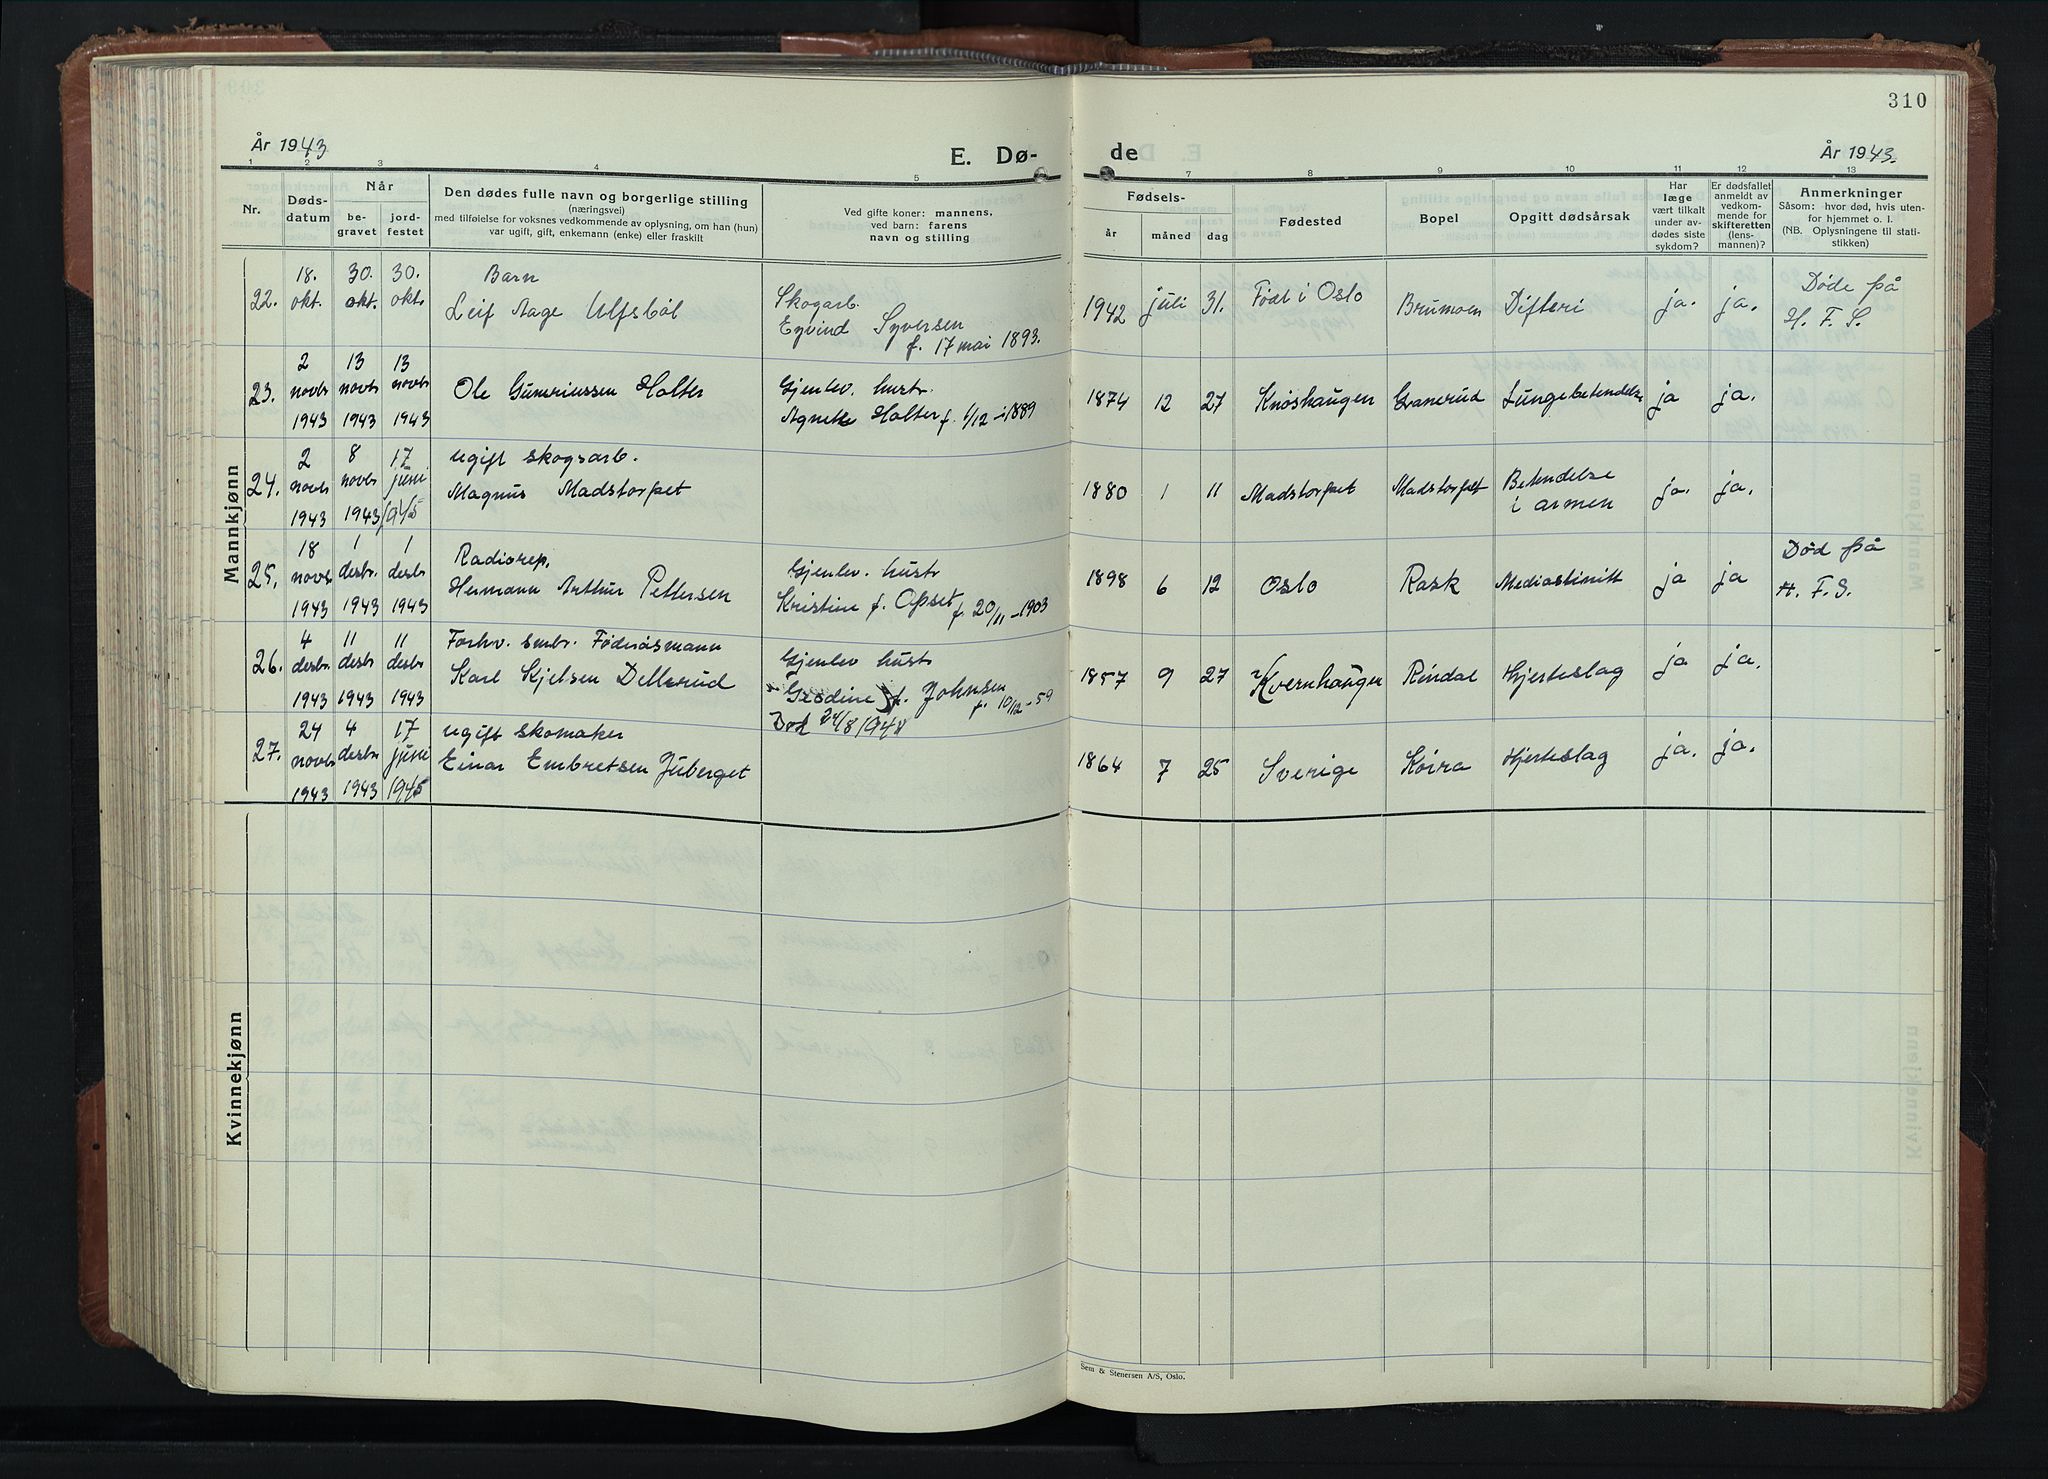 310
År 1943
E. Dø-
de
År 1943.
1 2 3 4 5 7 8 9 10 11 12 13
Nr.
Døds-
datum
Når
be-
gravet
jord-
festet
Den dødes fulle navn og borgerlige stilling
(næringsvei)
med tilføielse for voksnes vedkommende av oplysning, om han (hun)
var ugift, gift, enkemann (enke) eller fraskilt
Ved gifte koner: mannens,
ved barn: farens
navn og stilling
Fødsels-
år måned dag
Fødested
Bopel
Opgitt dødsårsak
Har
læge
vært tilkalt
under av-
dødes siste
sykdom?
Er dødsfallet
anmeldt av
vedkom-
mende for
skifteretten
(lens-
mannen)?
Anmerkninger
Såsom: hvor død, hvis uten-
for hjemmet o. l.
(NB. Oplysningene til stati-
stikken)
Mannkjønn
22.
18.
okt.
30.
okt.
30.
okt.
Barn
Leif Aage Ulfsbøl
Skogarb.
Eyvind Syversen
f. 17 mai 1893.
1942 juli 31. Født i Oslo Brumoen Difteri ja. ja.
Døde på
H. F. S.
23.
2
novbr
1943
13
novbr
1943
13
novbr
1943
Ole Guneriussen Holter
Gjenlev. hustr.
Agnete Holter f. 1/12 - 1889
1874 12 27 Knoshaugen Granerud Lungebetendelse ja ja.
24.
2
novbr
1943
8
novbr
1943
17
juni
1945
ugift skogsarb.
Magnus Madstorpet
1880 1 11 Madstorpet Madstorpet
Betendelse
i armen
ja. ja.
25.
18
novbr
1943
1
desbr.
1943
1
desbr
1943
Radiorep.
Hermann Arthur Pettersen
Gjenlev. hustr
Kristine f. Opset f. 20/11 - 1903
1898 6 12 Oslo Rask Mediastinitt ja ja
Død på
H. F. S.
26.
4
desbr.
1943
11
desbr
1943
11
desbr
1943
Forhv. smbr. Føderåsmann
Karl Kjelsen Dellerud
Gjenlev hustr
f. Johnsen
f. 10/12 - 59
Død 24/8 1948
1857 9 27 Kvernhaugen Rindal Hjerteslag ja ja.
27.
24
novbr
1943
4
desbr
1943
17
juni
1945
ugift skomaker
Einar Embretsen Juberget
1864 7 25 Sverige Koira Hjerteslag ja. ja.
Kvinnekjønn
Sem & Stenersen A/S, Oslo.